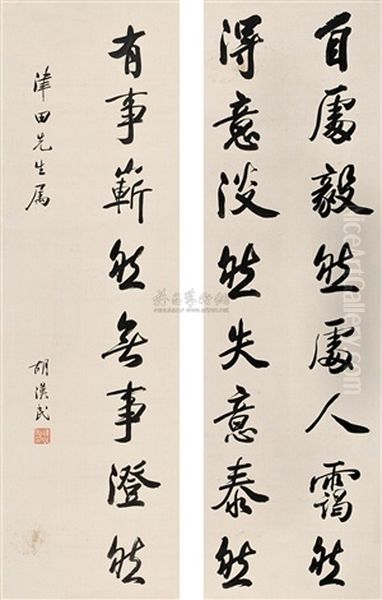 自處毅然處人靄然
得意淡然失意泰然
有事嶄然無事澄然
津田先生属
胡漢民